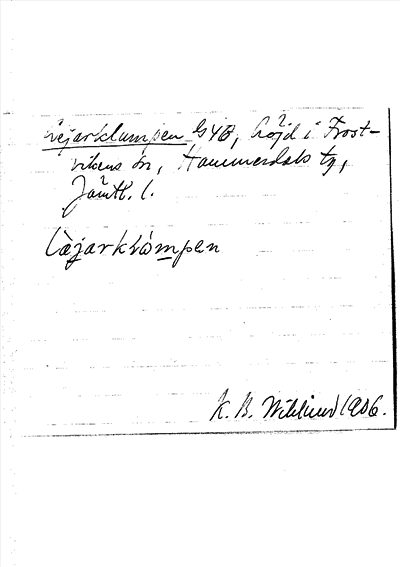 Lejarklumpen G4B, höjd i Frost-
vikens sn, Hammerdals tg,
Jämtl. l.
Lèjarklòmpen
K. B. Wiklund 1906.